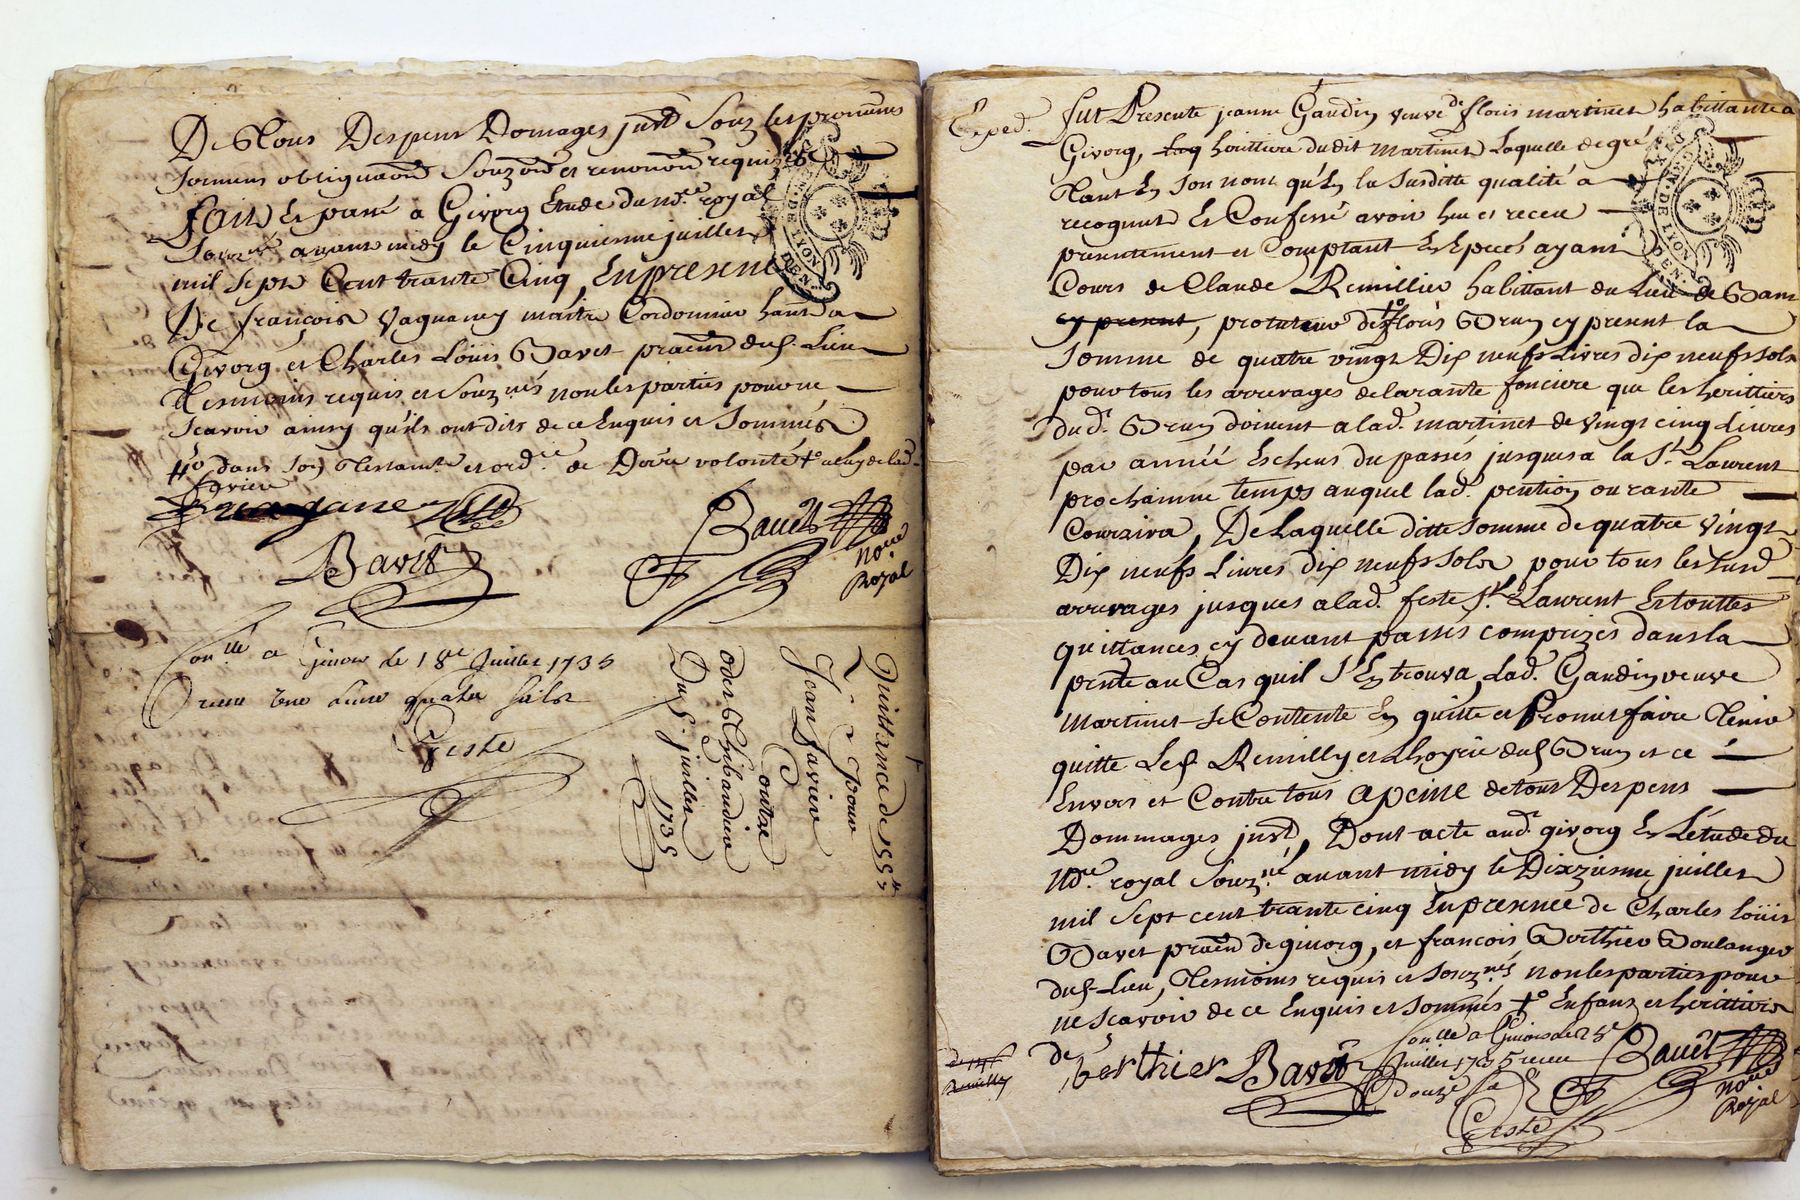 De Tous Despens Domages just Souz les promesses
Sermens obligations Souzons et renonons requizes
fait Et passé a Givorg Etude du no.re royal
Souz.né avant midy le Cinquiesme juillet
mil Sept Cent trante Cinq, En presence
De françois Vaganay maitre Cordonnier hant a
Givorg et Charles Loüis Bavet praticien dud. Lieu
Tesmoins requis et Souz.nés non les parties pour ne
Scavoir ainsy qu'ils ont dit de ce Enquis et Sommés
dans Son Testam.t et ord.ce de Dere volonté
favier
Bavet
Bauët
No.re
Royal
Con.llé a Givors le 18e Juillet 1735
Receu une Livre quatre Sols
Geste
Quittance de 155lt
pour
Jean favier
Contre
oder Thibaudier
Du 5. juillet
1735
Exped.
fut Presente jeanne Gaudin veuve de floris martinet habittante a
Givorg, heritiere dudit martinet Laquelle de gré
Tant En Son nom qu'En la Susditte qualité a
recognut Et Confessé avoir heu et receu
presentement et Comptant En Especes ayant
Cours de Claude Remillier habittant du Lieu de Bans
cy present, protuteur de floris Brun cy present la
Somme de quatre vingt Dix neufs Livres dix neufs sols
pour tous les arrerages de la rante fonciere que les herittiers
dud. Brun doivent a lad. martinet de vingt cinq Livres
par année Escheus du passés jusques a la St. Laurent
prochainne temps auquel lad. pention ou rante
Courrira, De Laquelle ditte Somme de quatre vingt
Dix neufs Livres dix neufs sols pour tous les susd.
arrerages jusques a lad. feste St. Laurent Et touttes
quittances cy devant passés comprizes dans la
pnte au Cas quil S'En trouva, Lad. Gaudin veuve
martinet Se Contente En quitte et Promet faire Tenir
quitte Led. Remilly et hoyrie dud. Brun et ce
Envers et Contre tous a peine de tous Despens
Dommages just, Dont acte aud. givorg En L'étude du
No.re royal Souz.né avant midy le Dixziesme juillet
mil Sept cent trante cinq En presence de Charles Loüis
Bavet praticien de givorg, et françois Berthier Boulanger
dud. Lieu, Tesmoins requis et Souz.nés non les parties pour
ne Scavoir de ce Enquis et Sommés †o Enfans et herittiers
de
Berthier Bavet
Con.llé a Givors le 25e
Juillet 1735 receu
Douze sols
Geste
Bauët
No.re
Royal